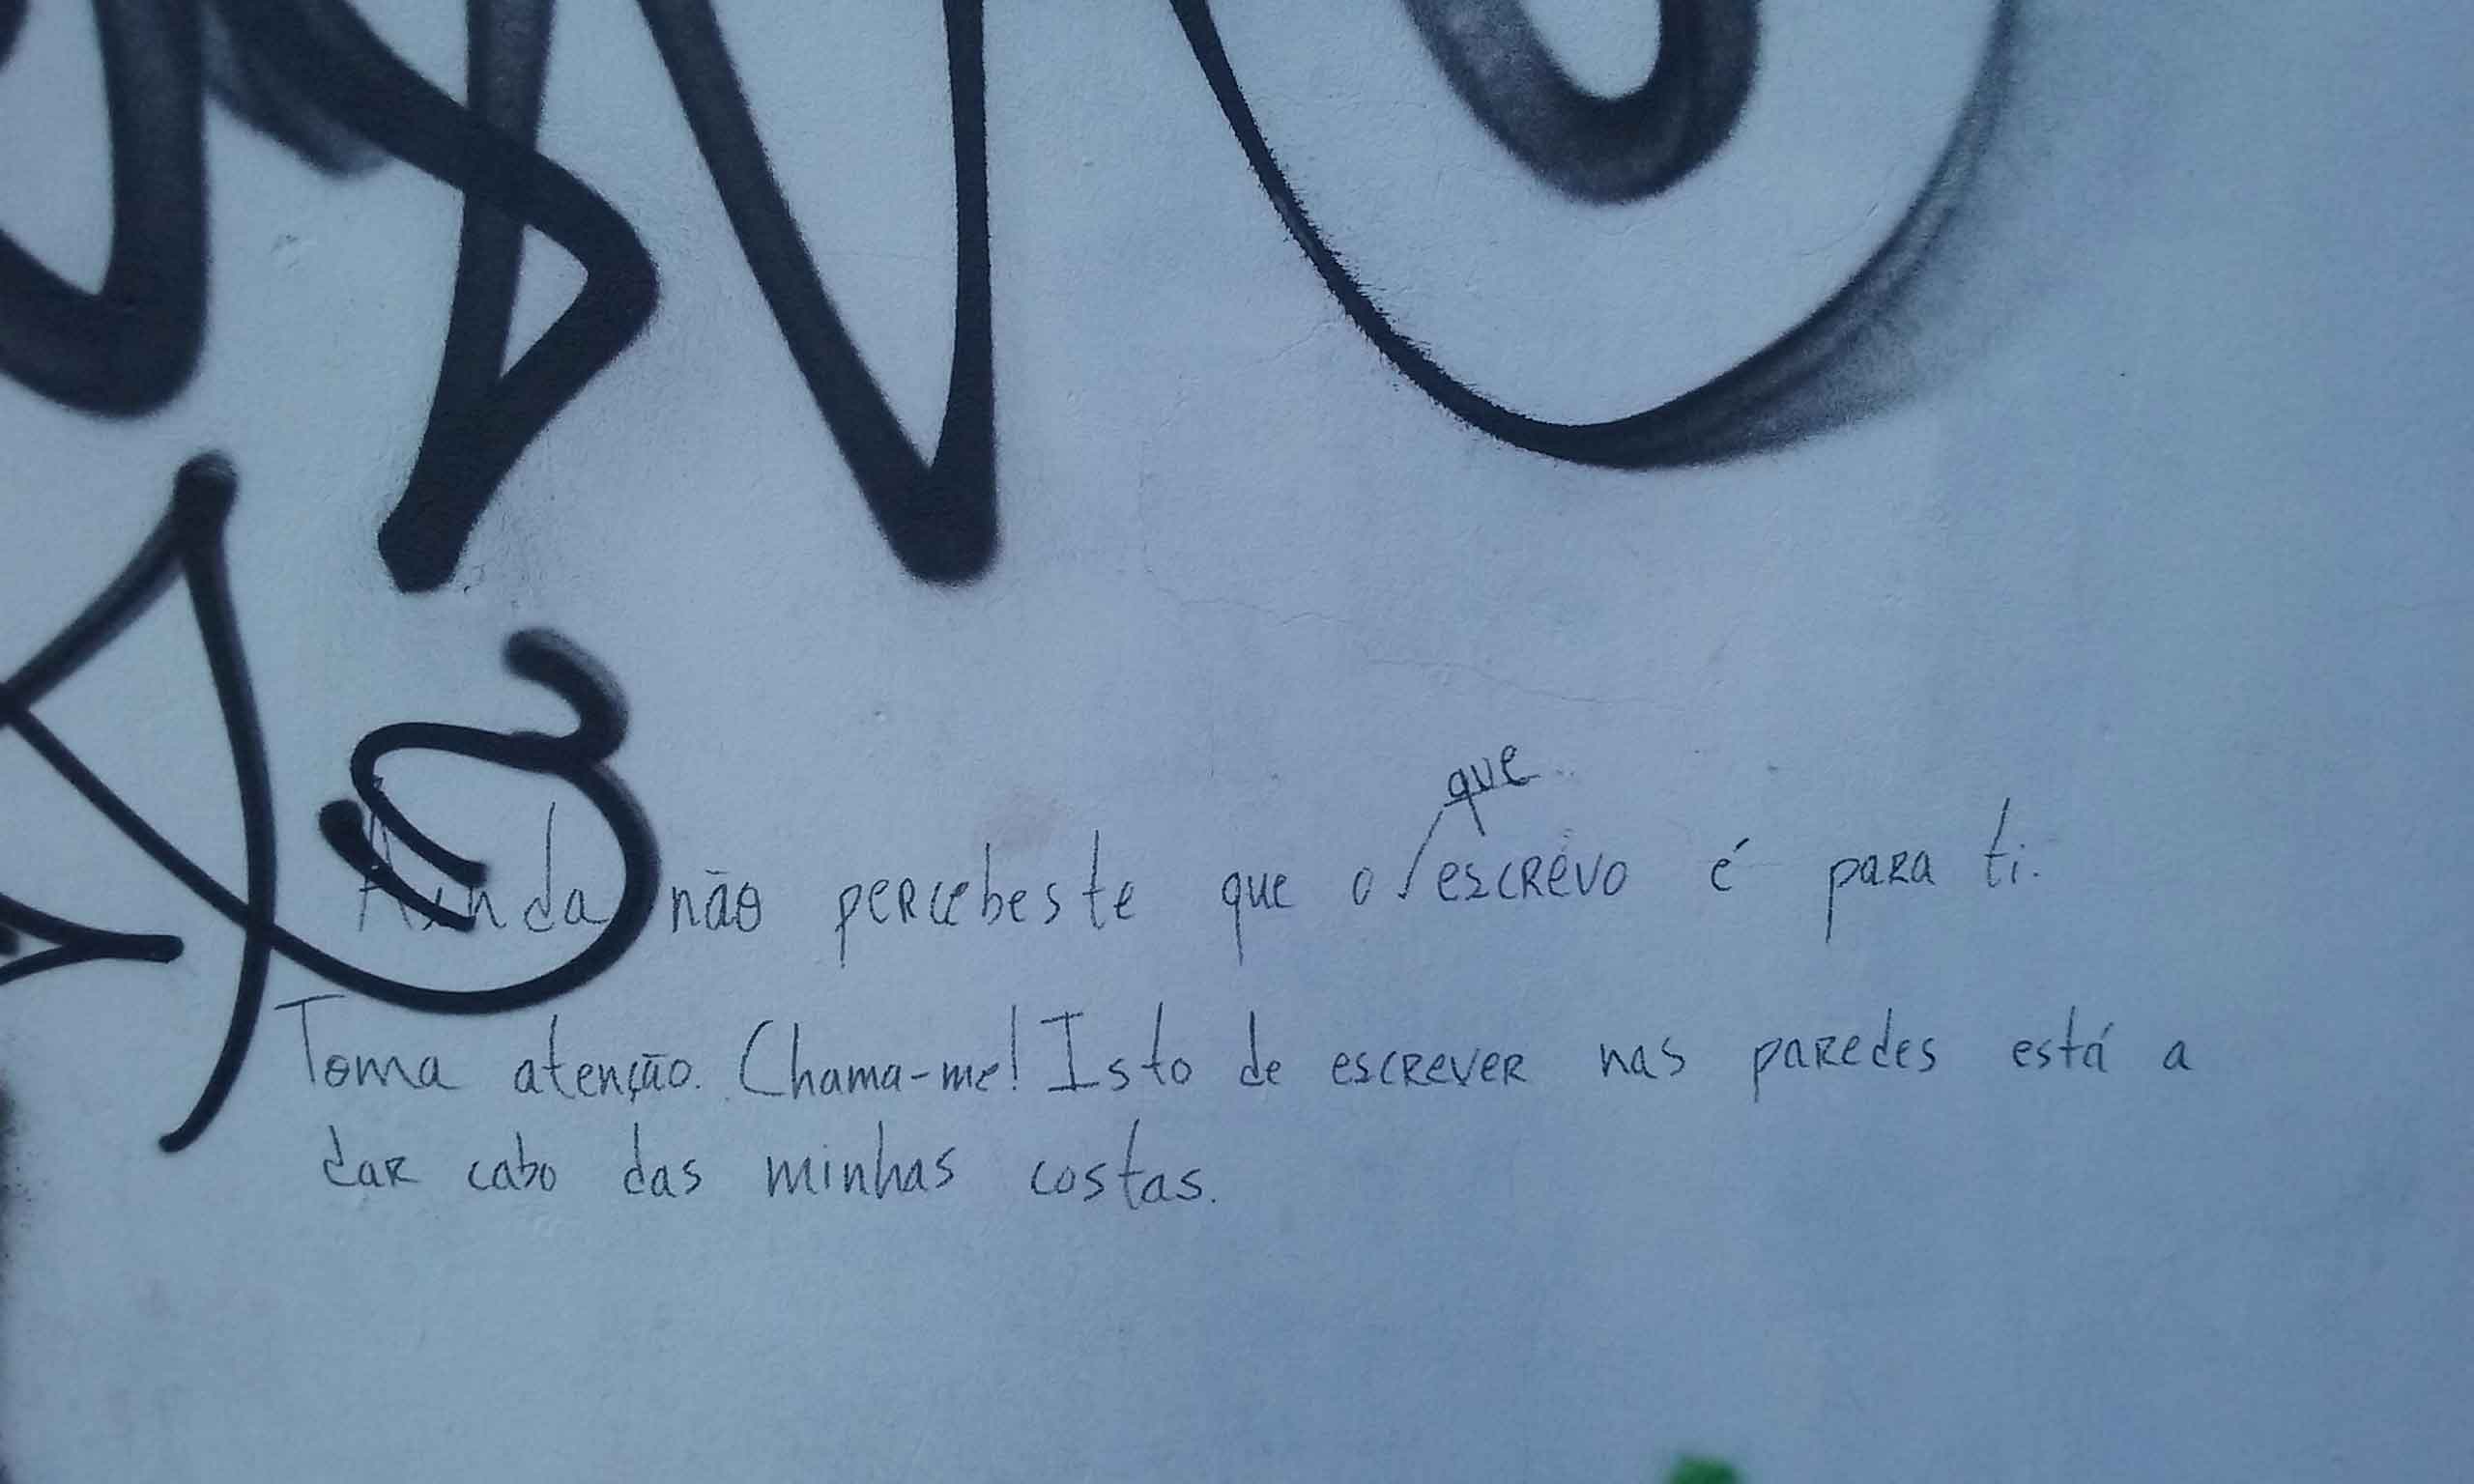 Ainda não percebeste que o que escrevo é para ti.
Toma atenção. Chama-me! Isto de escrever nas paredes está a
dar cabo das minhas costas.